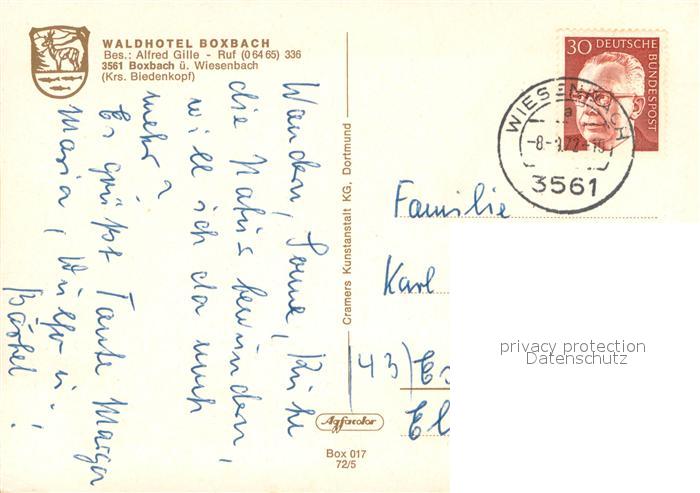 WALDHOTEL BOXBACH
Bes.: Alfred Gille - Ruf (0 64 65) 336
3561 Boxbach ü. Wiesenbach
(Krs. Biedenkopf)
Wandern, Sonne, Ruhe
die Natur bewundern,
will ich da noch
mehr?
Es grüßt Tante Marga
Maria,
Bärbel
Cramers Kunstanstalt KG, Dortmund
Agfacolor
Box 017
72/5
30 DEUTSCHE
BUNDESPOST
WIESENBACH
a
3561
Familie
Karl
(43)
privacy protection
Datenschutz